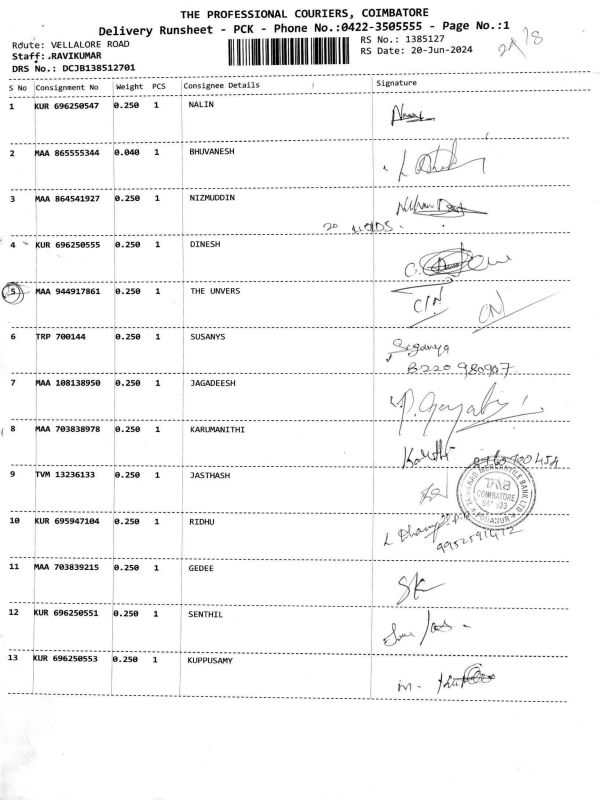 THE PROFESSIONAL COURIERS, COIMBATORE
Delivery Runsheet - PCK - Phone No.:0422-3505555 - Page No.:1
Route: VELLALORE ROAD
RS No.: 1385127
Staff: RAVIKUMAR
RS Date: 20-Jun-2024
DRS No.: DCJB138512701
S No Consignment No Weight PCS Consignee Details Signature
1 KUR 696250547 0.250 1 NALIN
2 MAA 865555344 0.040 1 BHUVANESH
3 MAA 864541927 0.250 1 NIZMUDDIN
4 KUR 696250555 0.250 1 DINESH
5 MAA 944917861 0.250 1 THE UNVERS
C/N CN
6 TRP 700144 0.250 1 SUSANYS
8220 980907
7 MAA 108138950 0.250 1 JAGADEESH
8 MAA 703838978 0.250 1 KARUMANITHI
9 TVM 13236133 0.250 1 JASTHASH
TAMILNAD MERCANTILE BANK LTD
TMB
COIMBATORE
10 KUR 695947104 0.250 1 RIDHU
11 MAA 703839215 0.250 1 GEDEE
12 KUR 696250551 0.250 1 SENTHIL
13 KUR 696250553 0.250 1 KUPPUSAMY